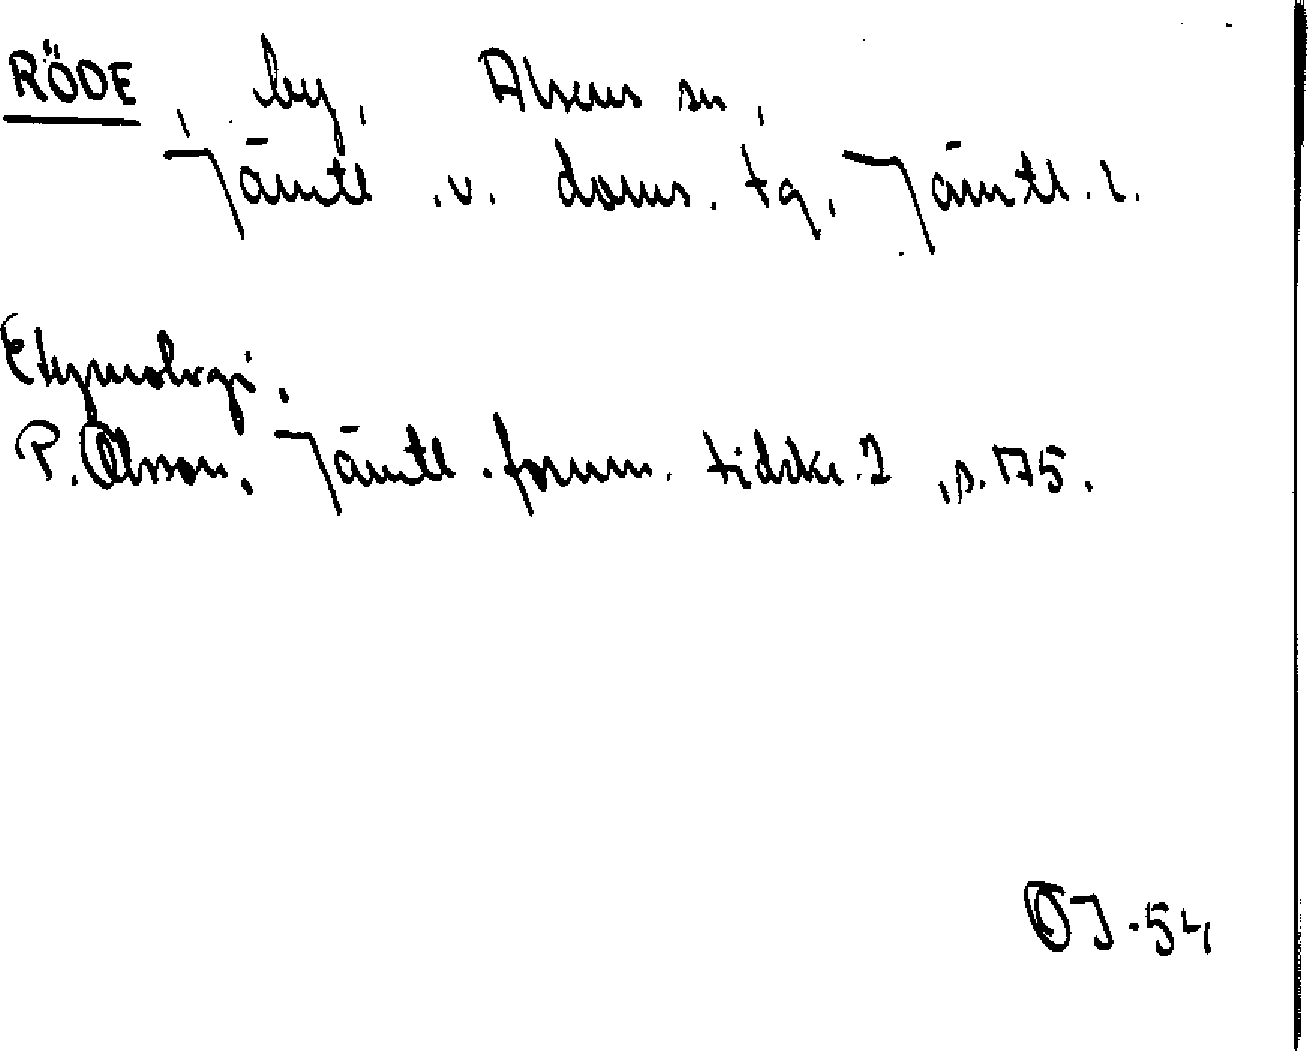 RÖDE, by, Alsens sn,
Jämtl. v. doms. tg, Jämtl. l.
Etymologi.
P. Olsson, Jämtl. fornm. tidskr. 2, s. 175.
OJ-54